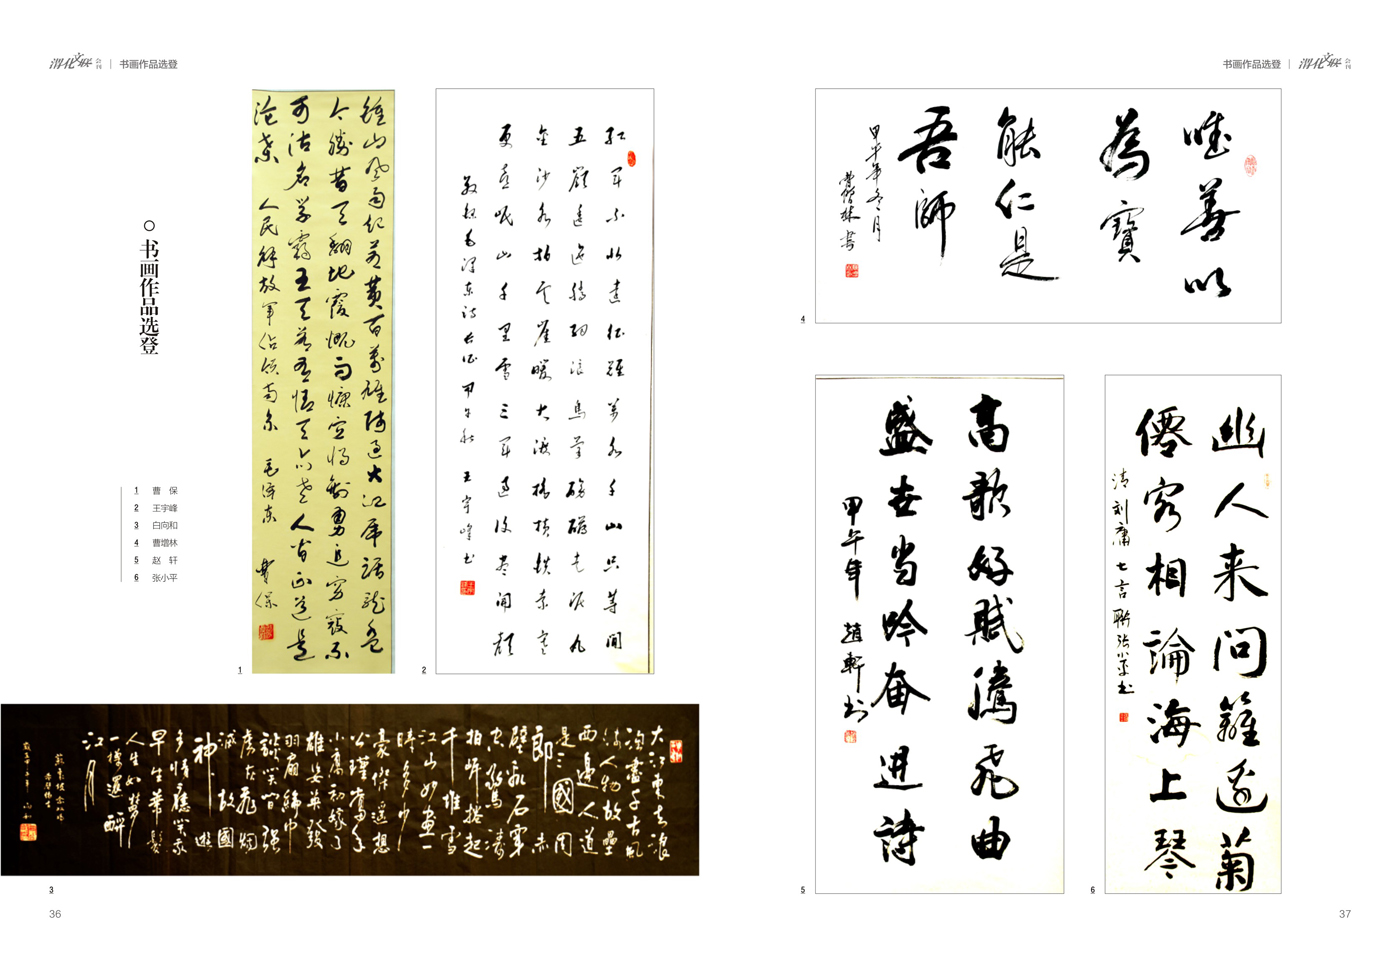 渭化文联 会刊 | 书画作品选登
书画作品选登 | 渭化文联 会刊
书画作品选登
1 曹 保
2 王宇峰
3 白向和
4 曹增林
5 赵 轩
6 张小平
鍾山风雨起苍黄百万雄师过大江虎踞龙盘
今胜昔天翻地覆慨而慷宜将剩勇追穷寇不
可沽名学霸王天若有情天亦老人间正道是
沧桑 人民解放军占领南京 毛泽东 曹保
1
红军不怕远征难万水千山只等闲
五岭逶迤腾细浪乌蒙磅礴走泥丸
金沙水拍云崖暖大渡桥横铁索寒
更喜岷山千里雪三军过后尽开颜
敬录毛泽东诗长征 甲午秋 王宇峰书
2
大江東去浪
淘盡千古風
流人物故壘
西邊人道
是三國周
郎赤
壁亂石穿
空驚濤
拍岸捲起
千堆雪
江山如畫一
時多少
豪傑遥想
公瑾當年
小喬初嫁了
雄姿英發
羽扇綸巾
談笑間强
虜灰飛烟
滅故國
神遊
多情應笑我
早生華髮
人生如夢
一樽還酹
江月
3
36
唯善以
為寶
能仁是
吾師
甲午年冬月
曹增林書
4
高歌好賦騰飛曲
盛世当吟奋进詩
甲午年 趙軒书
5
幽人来问籬邊菊
僊客相論海上琴
清刘庸七言聯张小平书
6
37